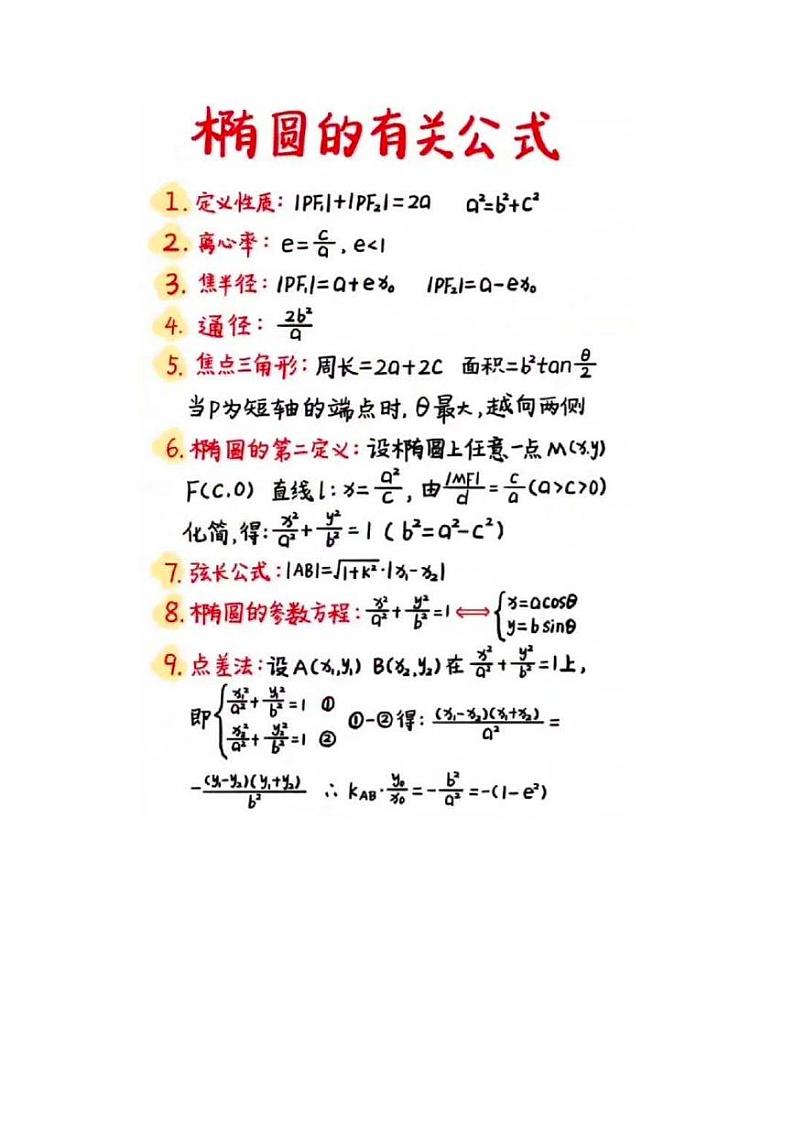 椭圆的有关公式
1. 定义性质：|PF₁|+|PF₂|=2a a²=b²+c²
2. 离心率：e=c/a，e<1
3. 焦半径：|PF₁|=a+ex₀ |PF₂|=a-ex₀
4. 通径：2b²/a
5. 焦点三角形：周长=2a+2c 面积=b²tan θ/2
当P为短轴的端点时，θ最大，越向两侧
6. 椭圆的第二定义：设椭圆上任意一点M(x,y)
F(C,0) 直线l：x=a²/c，由|MF|/d=c/a(a>c>0)
化简，得：x²/a²+y²/b²=1（b²=a²-c²）
7. 弦长公式：|AB|=√(1+k²)·|x₁-x₂|
8. 椭圆的参数方程：x²/a²+y²/b²=1⟺{x=acosθ
y=bsinθ
9. 点差法：设A(x₁,y₁) B(x₂,y₂)在x²/a²+y²/b²=1上，
即{x₁²/a²+y₁²/b²=1 ①
x₂²/a²+y₂²/b²=1 ②
①-②得：(x₁-x₂)(x₁+x₂)/a²=
-(y₁-y₂)(y₁+y₂)/b² ∴ k_AB·y₀/x₀=-b²/a²=-(1-e²)